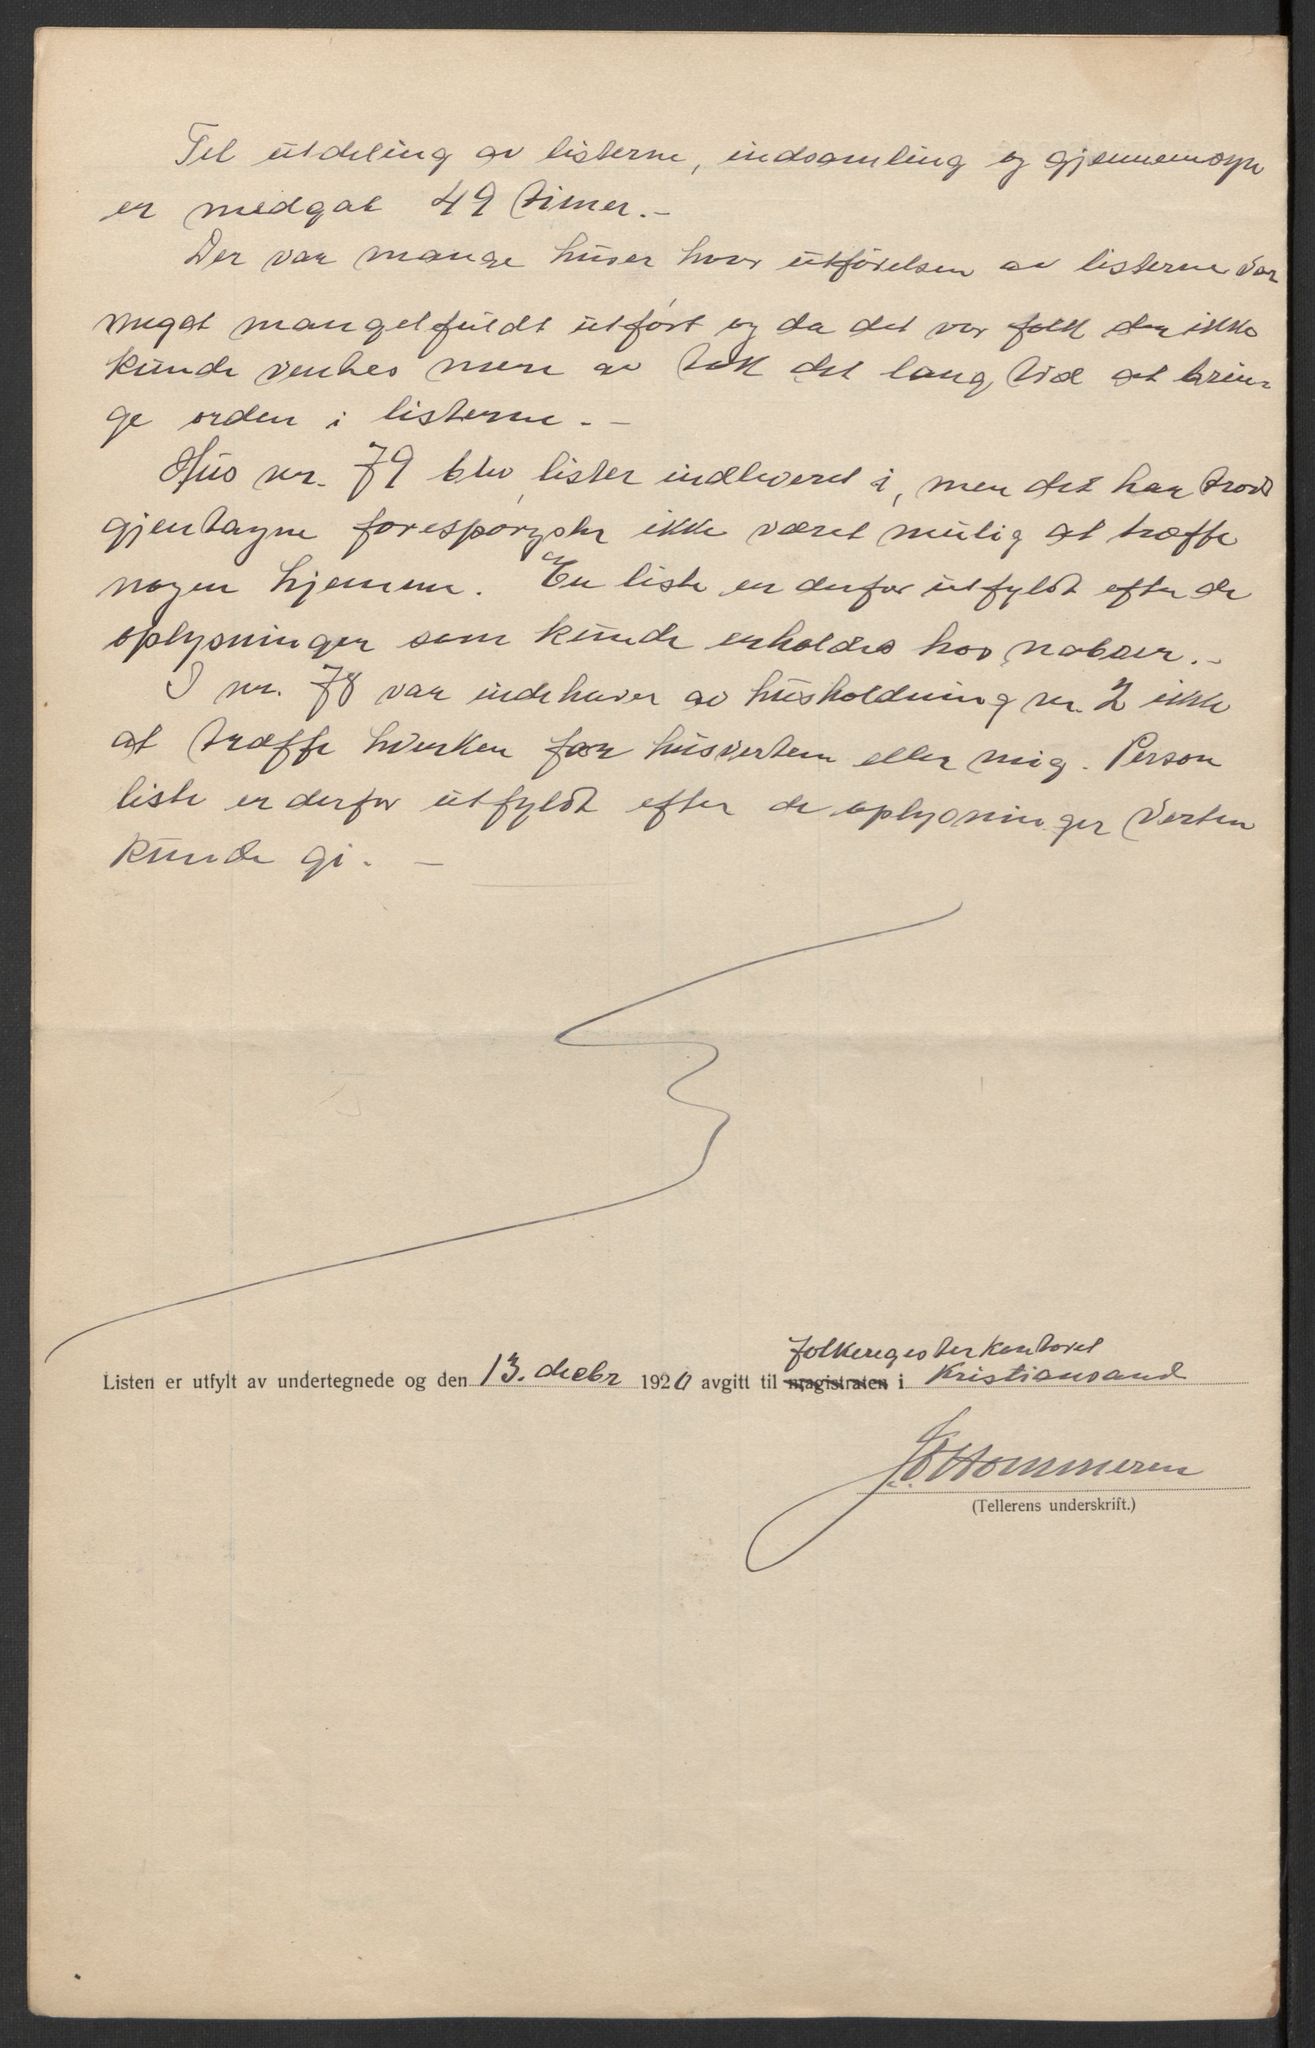 Til utdeling av listerne, indsamling og gjennemsyn
er medgat 49 timer.-
Der var mange huser hvor utførelsen av listerne var
meget mangelfuldt utført og da det var folk der ikke
kunde ventes mere av tok det lang tid at brin-
ge orden i listerne.-
Hus nr. 79 blev lister indleveret i, men det har trods
gjentagne forespørgsler ikke været mulig at træffe
nogen hjemme. En liste er derfor utfyldt efter de
oplysninger som kunde erholdes hos naboer.-
I nr. 78 var indehaver av husholdning nr. 2 ikke
at træffe hverken for husverten eller mig. Person
liste er derfor utfyldt efter de oplysninger verten
kunde gi. -
folkeregisterkontoret
Listen er utfylt av undertegnede og den 13. decbr 1920 avgitt til magistraten i Kristiansand
Hommeren
(Tellerens underskrift.)